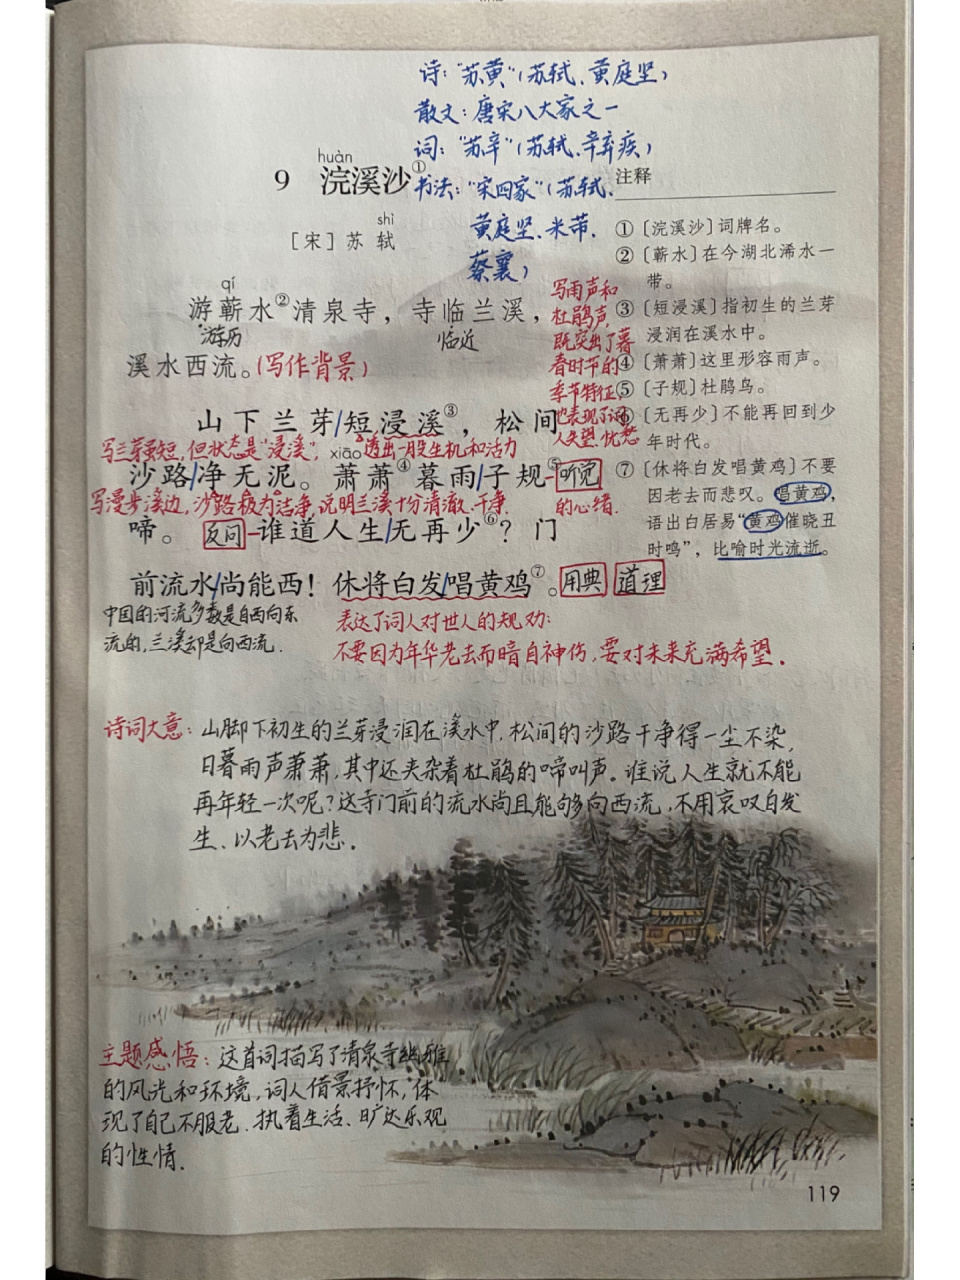 诗："苏黄"（苏轼、黄庭坚）
散文：唐宋八大家之一
词："苏辛"（苏轼、辛弃疾）
书法："宋四家"（苏轼、
黄庭坚、米芾、
蔡襄）
huàn
9 浣溪沙①
shì
［宋］苏 轼
qí
游蕲水②清泉寺，寺临兰溪，
游历
临近
溪水西流。（写作背景）
山下兰芽/短浸溪③，松间
写兰芽虽短，但状态是"浸溪"，透出一股生机和活力
xiāo
沙路/净无泥。萧萧④暮雨/子规⑤
听觉
写漫步溪边，沙路极为洁净，说明兰溪十分清澈、干净.
啼。
反问
谁道人生/无再少⑥？门
前流水/尚能西！休将白发/唱黄鸡⑦。
用典 道理
中国的河流多数是自西向东
流的，兰溪却是向西流.
表达了词人对世人的规劝：
不要因为年华老去而暗自神伤，要对未来充满希望.
写雨声和
杜鹃声，
既突出了暮
春时节的
季节特征，
也表现了词
人失望、忧愁
的心绪.
注释
①〔浣溪沙〕词牌名。
②〔蕲水〕在今湖北浠水一
带。
③〔短浸溪〕指初生的兰芽
浸润在溪水中。
④〔萧萧〕这里形容雨声。
⑤〔子规〕杜鹃鸟。
⑥〔无再少〕不能再回到少
年时代。
⑦〔休将白发唱黄鸡〕不要
因老去而悲叹。唱黄鸡，
语出白居易"黄鸡催晓丑
时鸣"，比喻时光流逝。
诗词大意：山脚下初生的兰芽浸润在溪水中，松间的沙路干净得一尘不染，
日暮雨声萧萧，其中还夹杂着杜鹃的啼叫声。谁说人生就不能
再年轻一次呢？这寺门前的流水尚且能够向西流，不用哀叹白发
生、以老去为悲.
主题感悟：这首词描写了清泉寺幽雅
的风光和环境，词人借景抒怀，体
现了自己不服老、执着生活、旷达乐观
的性情.
119